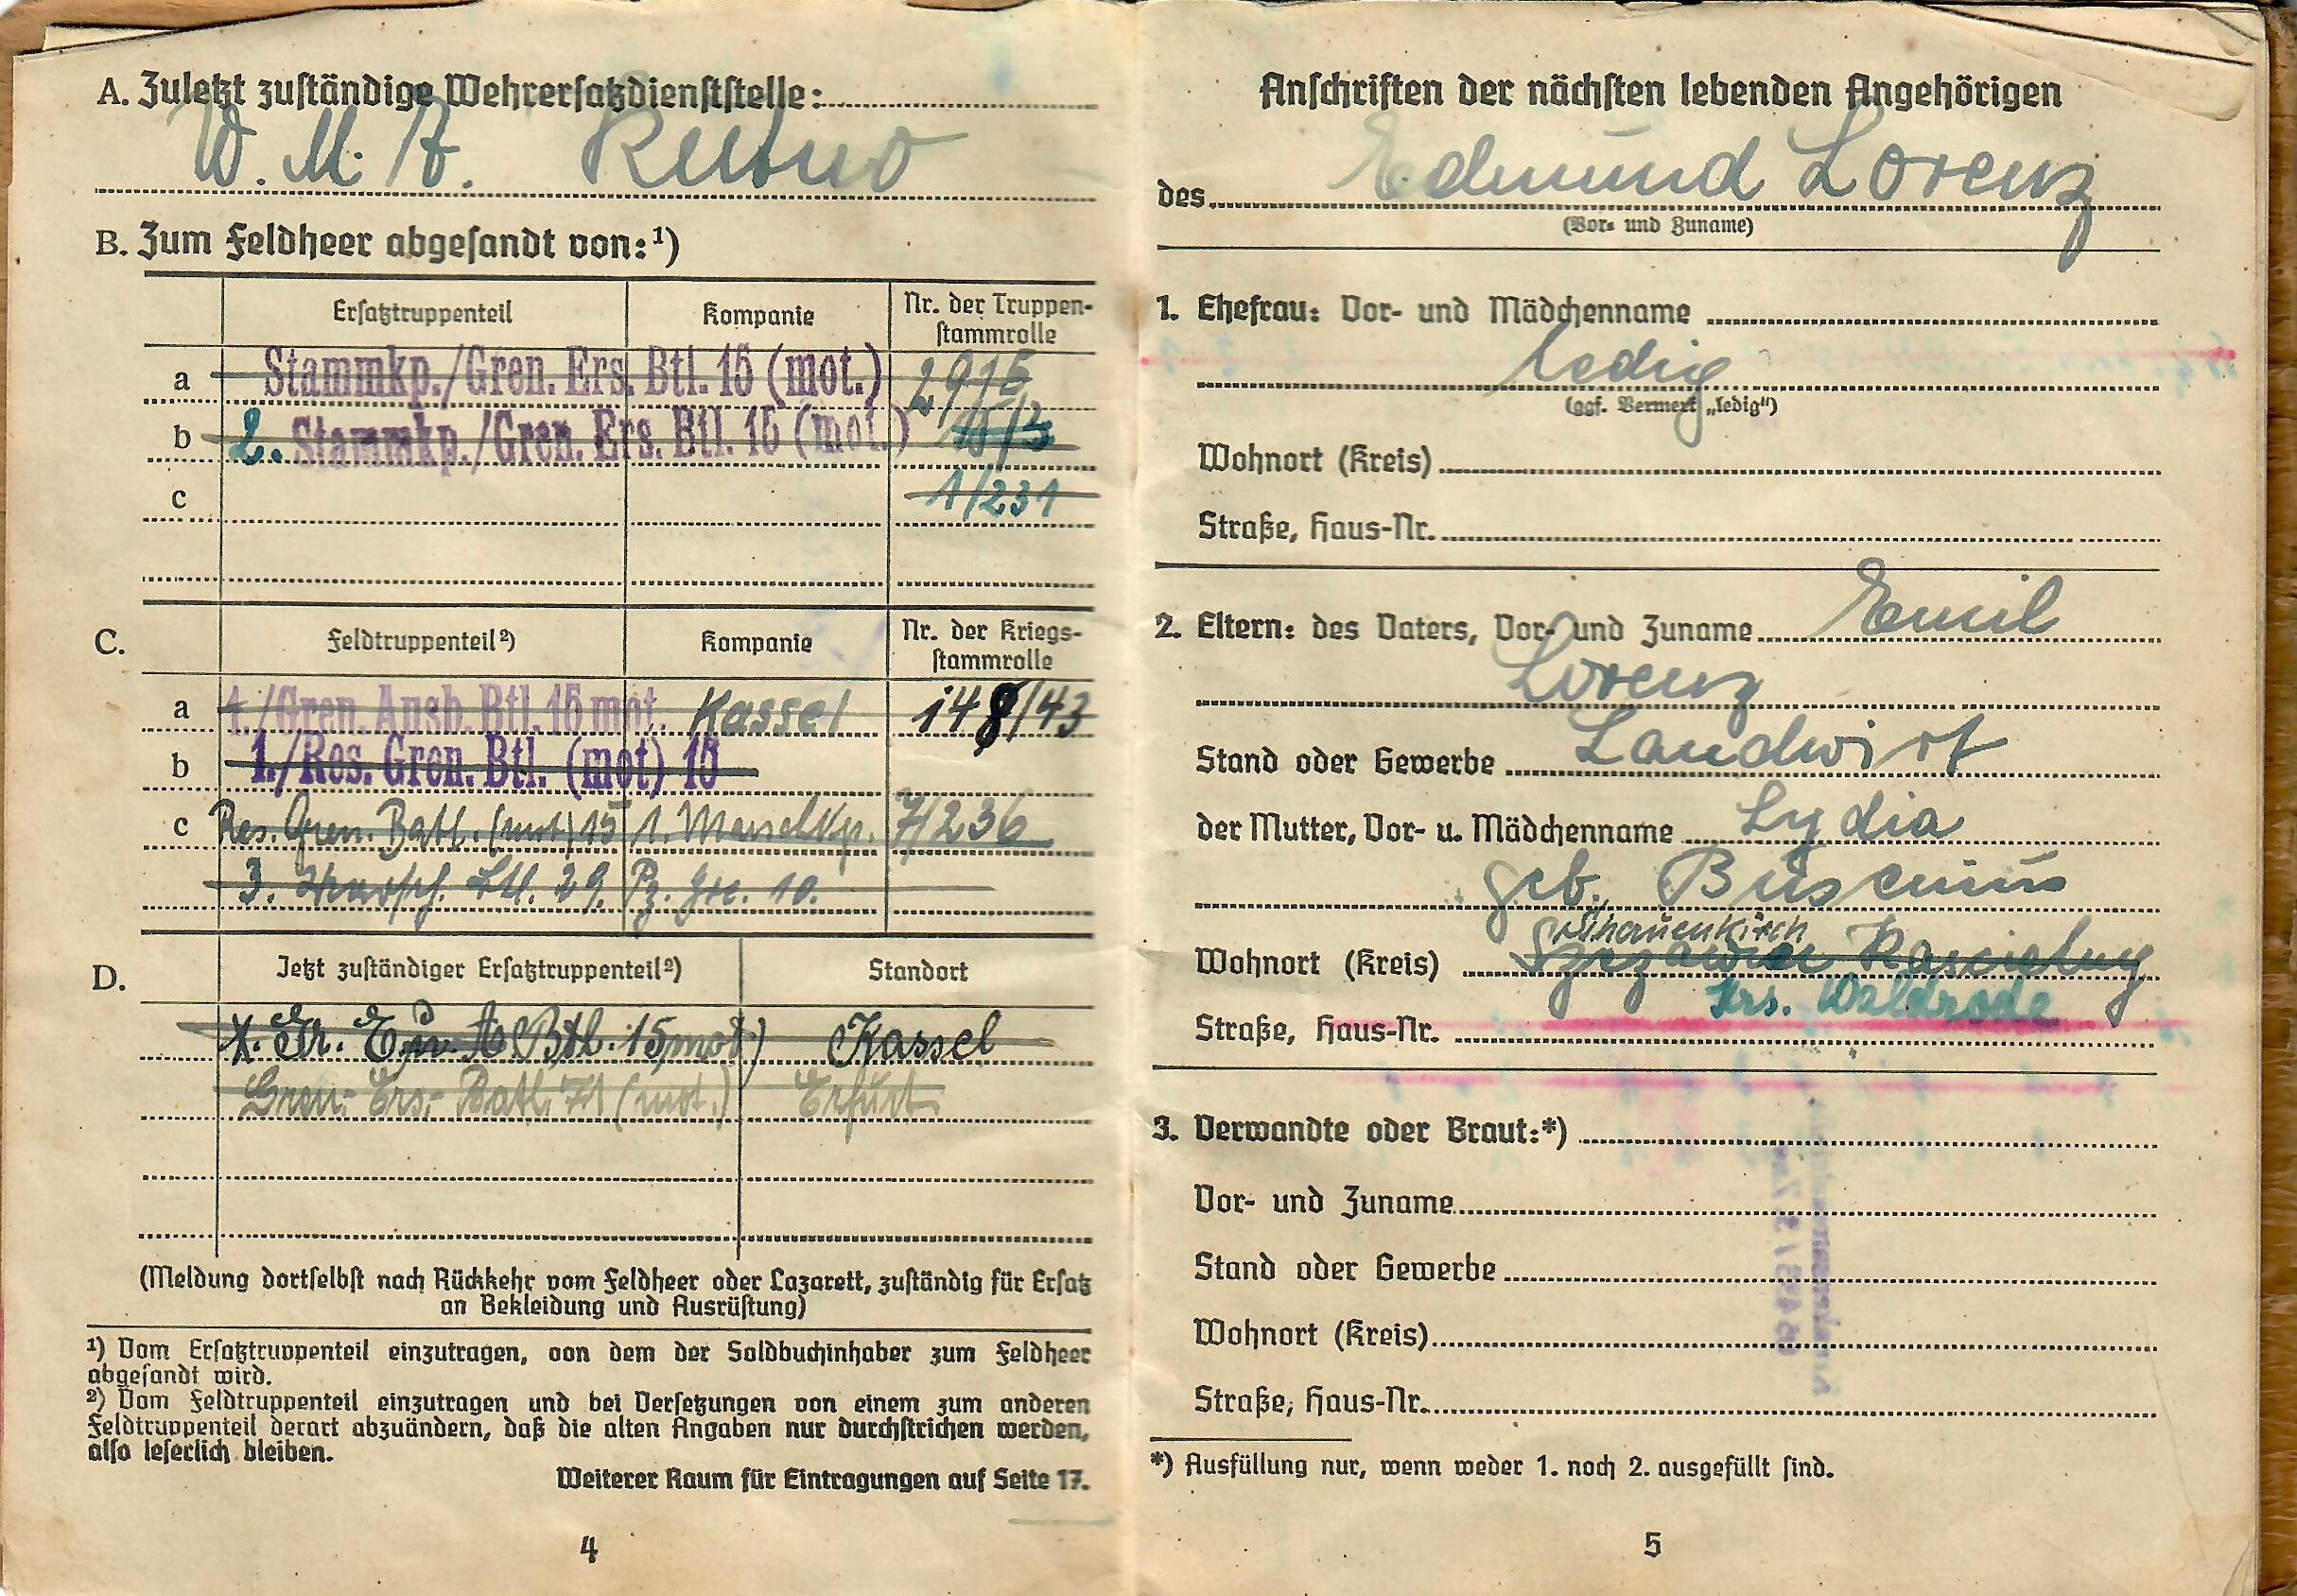 A. Zuletzt zuständige Wehrersatzdienststelle:
W. M. A. Kutno
B. Zum Feldheer abgesandt von:¹)
Ersatztruppenteil Kompanie Nr. der Truppen-
stammrolle
a Stammkp./Gren. Ers. Btl. 15 (mot.) 2915
b 2. Stammkp./Gren. Ers. Btl. 15 (mot.)
c 1/231
C. Feldtruppenteil²) Kompanie Nr. der Kriegs-
stammrolle
a 1./Gren. Ausb. Btl. 15 mot. Kassel 148/43
b 1./Res. Gren. Btl. (mot) 15
c Res. Gren. Batl. (mot) 15 1. Marschkp. 7/236
3. 29. Pz. Gre. 10.
D. Jetzt zuständiger Ersatztruppenteil²) Standort
Btl. 15 mot) Kassel
Gren.-Ers.-Batl. 71 (mot.) Erfurt
(Meldung dortselbst nach Rückkehr vom Feldheer oder Lazarett, zuständig für Ersatz
an Bekleidung und Ausrüstung)
¹) Vom Ersatztruppenteil einzutragen, von dem der Soldbuchinhaber zum Feldheer
abgesandt wird.
²) Vom Feldtruppenteil einzutragen und bei Versetzungen von einem zum anderen
Feldtruppenteil derart abzuändern, daß die alten Angaben nur durchstrichen werden,
also leserlich bleiben.
Weiterer Raum für Eintragungen auf Seite 17.
4
Anschriften der nächsten lebenden Angehörigen
des Edmund Lorenz
(Vor- und Zuname)
1. Ehefrau: Vor- und Mädchenname
ledig
(ggf. Vermerk „ledig“)
Wohnort (Kreis)
Straße, Haus-Nr.
2. Eltern: des Vaters, Vor- und Zuname Emil
Lorenz
Stand oder Gewerbe Landwirt
der Mutter, Vor- u. Mädchenname Lydia
geb.
Wohnort (Kreis)
Krs. Waldrode
Straße, Haus-Nr.
3. Verwandte oder Braut:*)
Vor- und Zuname
Stand oder Gewerbe
Wohnort (Kreis)
Straße, Haus-Nr.
*) Ausfüllung nur, wenn weder 1. noch 2. ausgefüllt sind.
5